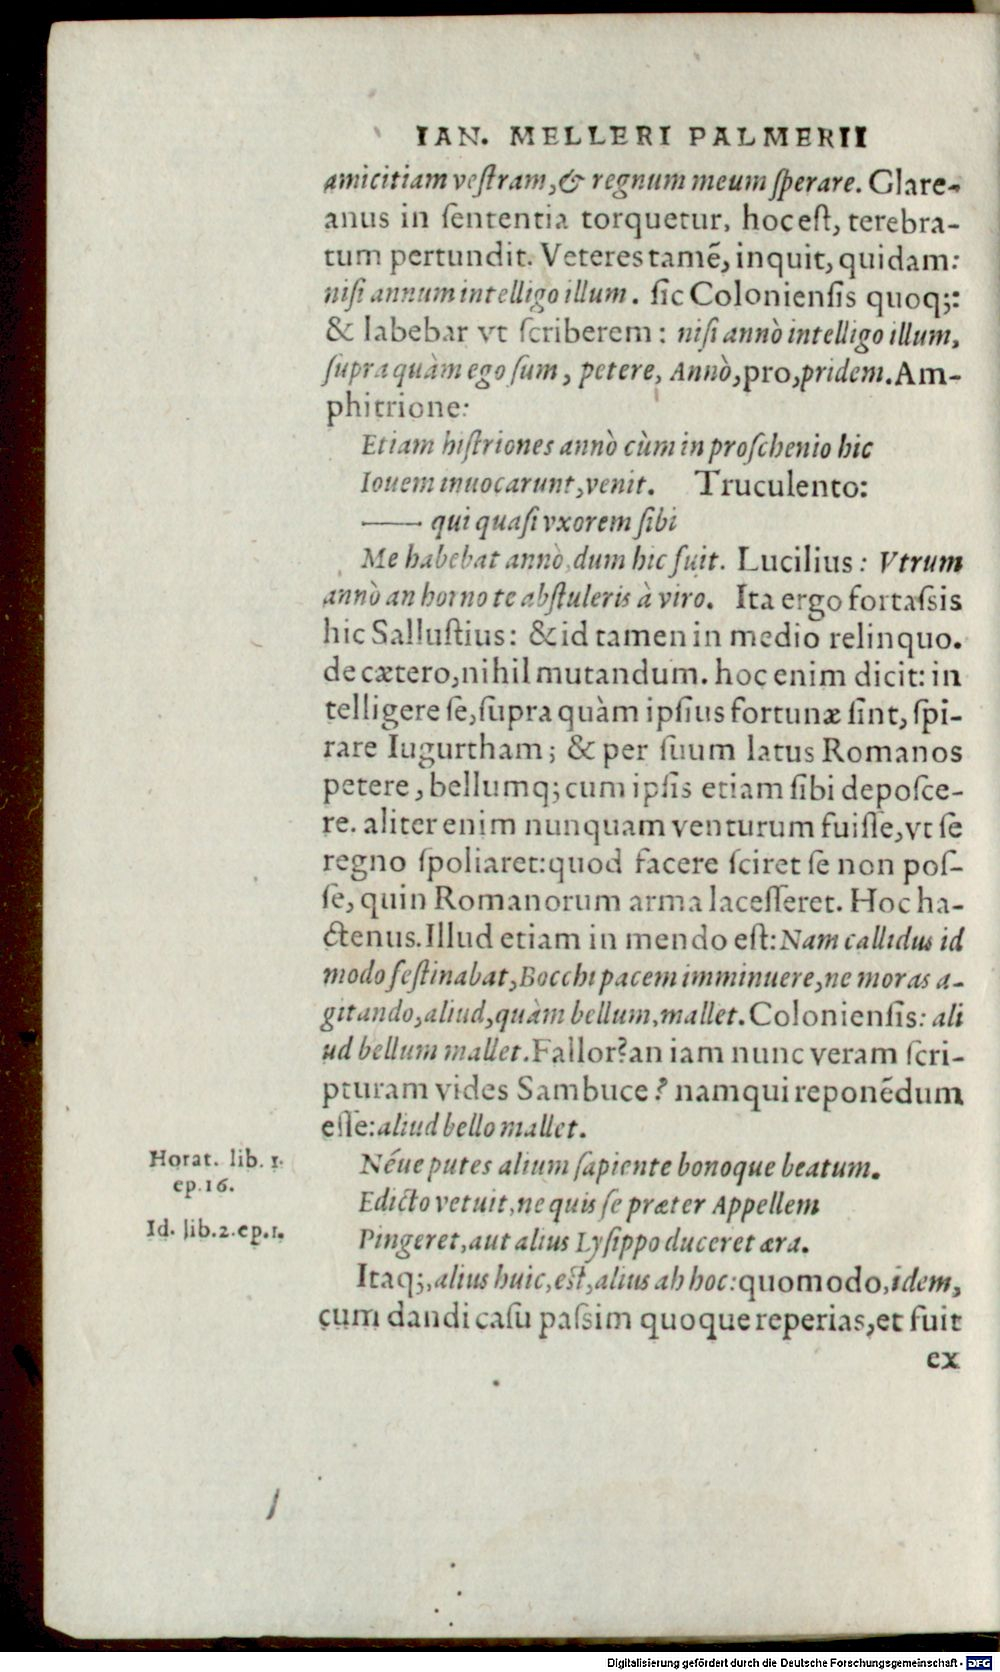 IAN. MELLERI PALMERII
amicitiam veſtram, & regnum meum ſperare. Glare-
anus in ſententia torquetur, hoc eſt, terebra-
tum pertundit. Veteres tamē, inquit, quidam:
niſi annum intelligo illum. ſic Colonienſis quoq;:
& labebar vt ſcriberem: niſi annò intelligo illum,
ſupra quàm ego ſum, petere, Annò, pro, pridem. Am-
phitrione:
Etiam hiſtriones annò cùm in proſchenio hic
Iouem inuocarunt, venit. Truculento:
—— qui quaſi vxorem ſibi
Me habebat annò, dum hic fuit. Lucilius: Vtrum
annò an horno te abſtuleris à viro. Ita ergo fortaſsis
hic Salluſtius: & id tamen in medio relinquo.
de cætero, nihil mutandum. hoc enim dicit: in
telligere ſe, ſupra quàm ipſius fortunæ ſint, ſpi-
rare Iugurtham; & per ſuum latus Romanos
petere, bellumq; cum ipſis etiam ſibi depoſce-
re. aliter enim nunquam venturum fuiſſe, vt ſe
regno ſpoliaret: quod facere ſciret ſe non poſ-
ſe, quin Romanorum arma laceſſeret. Hoc ha-
ctenus. Illud etiam in mendo eſt: Nam callidus id
modo feſtinabat, Bocchi pacem imminuere, ne moras a-
gitando, aliud, quàm bellum, mallet. Colonienſis: ali
ud bellum mallet. Fallor? an iam nunc veram ſcri-
pturam vides Sambuce? namqui reponēdum
eſſe: aliud bello mallet.
Horat. lib. 1.
ep. 16.
Néue putes alium ſapiente bonoque beatum.
Edicto vetuit, ne quis ſe præter Appellem
Id. lib. 2. ep. 1.
Pingeret, aut alius Lyſippo duceret æra.
Itaq;, alius huic, eſt, alius ab hoc: quomodo, idem,
cum dandi caſu paſsim quoque reperias, et fuit
ex
Digitalisierung gefördert durch die Deutsche Forschungsgemeinschaft - DFG